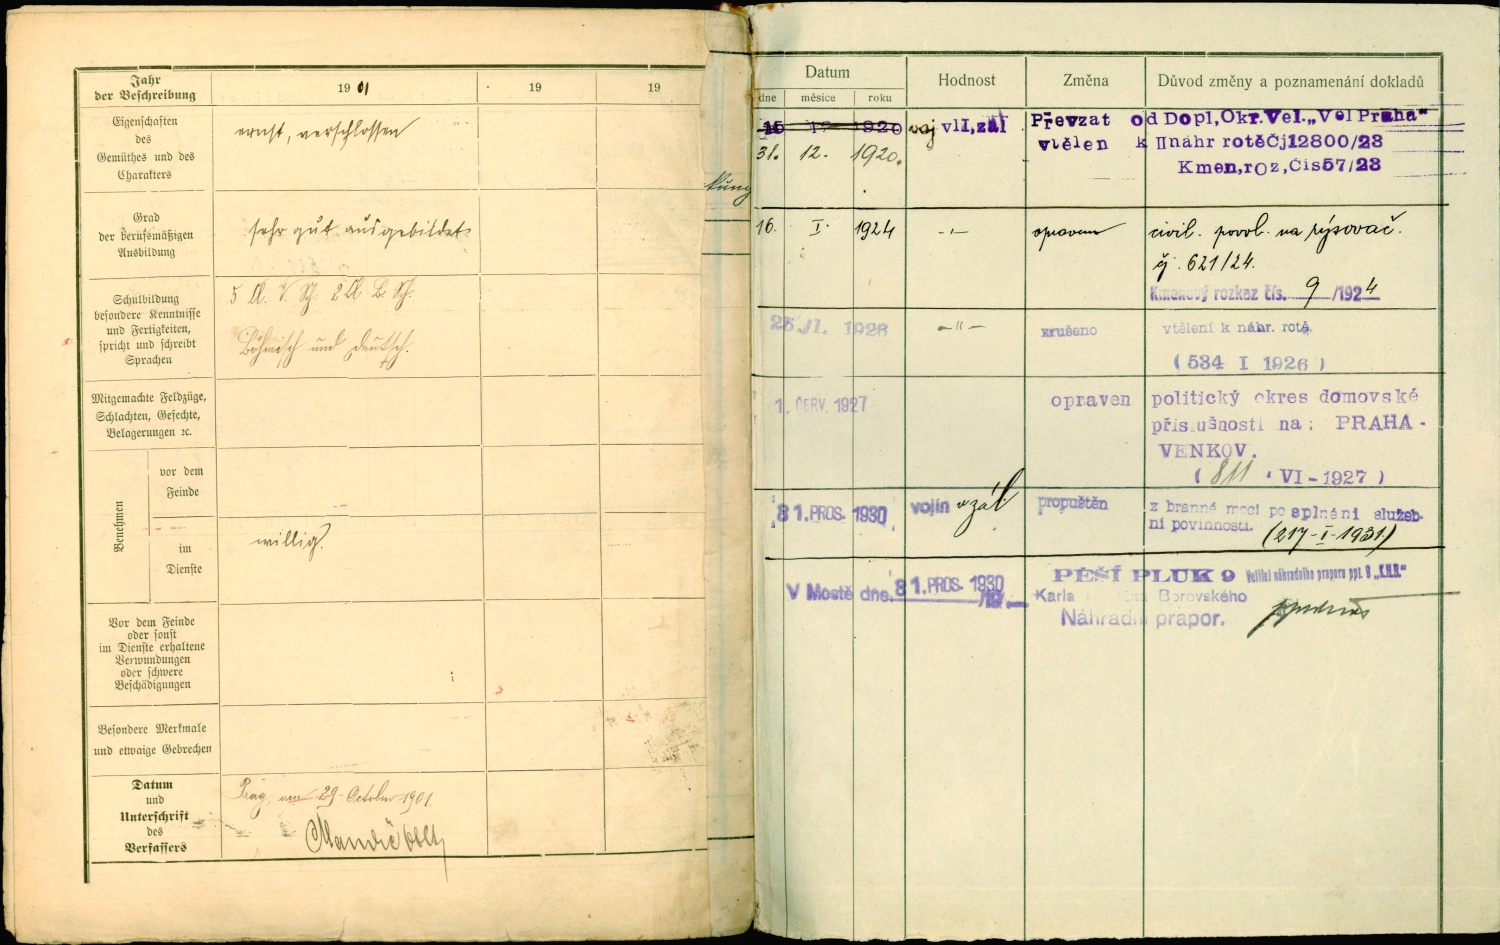 Jahr
der Beschreibung
1901
19
19
Eigenschaften
des
Gemüthes und des
Charakters
ernst, verschlossen
Grad
der berufsmäßigen
Ausbildung
sehr gut ausgebildet
Schulbildung
besondere Kenntnisse
und Fertigkeiten,
spricht und schreibt
Sprachen
5 Cl. V. Sch. 2 Cl. B. Sch.
Böhmisch und deutsch.
Mitgemachte Feldzüge,
Schlachten, Gefechte,
Belagerungen ꝛc.
Benehmen
vor dem
Feinde
im
Dienste
willig.
Vor dem Feinde
oder sonst
im Dienste erhaltene
Verwundungen
oder schwere
Beschädigungen
Besondere Merkmale
und etwaige Gebrechen
Datum
und
Unterschrift
des
Verfassers
Prag, am 29. October 1901.
kung
Datum
Hodnost
Změna
Důvod změny a poznamenání dokladů
dne
měsíce
roku
15 12 1920
31. 12. 1920.
voj vlI,zál
Převzat od Dopl,Okr.Vel.„Vel Praha“
vtělen k II náhr rotě Čj 12800/23
Kmen,roz,Čís 57/23
16. I. 1924 -„- opraven civil. povol. na rýsovač.
čj. 621/24.
Kmenový rozkaz čís. 9 /1924
25 /I. 1926 -"- zrušeno vtělení k náhr. rotě.
(534 I 1926)
1. ČERV. 1927 opraven politický okres domovské
příslušnosti na: PRAHA-
VENKOV.
(811 VI-1927)
31.PROS. 1930 vojín v zál propuštěn z branné moci po splnění služeb-
ní povinnosti.
(217-I-1931)
V Mostě dne 31.PROS. 1930
PĚŠÍ PLUK 9
Karla Borovského
Náhradní prapor.
Velitel náhradního praporu ppl. 9 „K.H.B.“